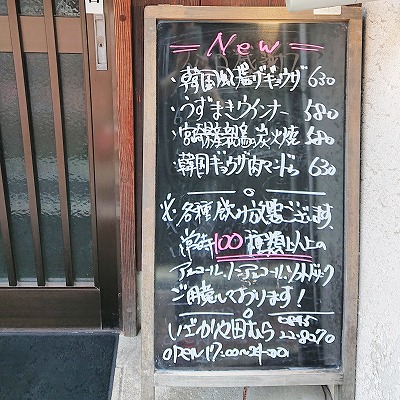 = New =
・韓国風塩ザギョウザ 630
・うずまきウインナー 580
・宮崎産鶏の炭火焼 580
・韓国ギョウザ肉マンドゥ 630
※各種飲み放題ございます。
常時100種類以上の
アルコール、ノンアルコール、ソフトドリンク
ご用意しております!
いごかや田なら
0845
22-8070
open 17:00~24:00